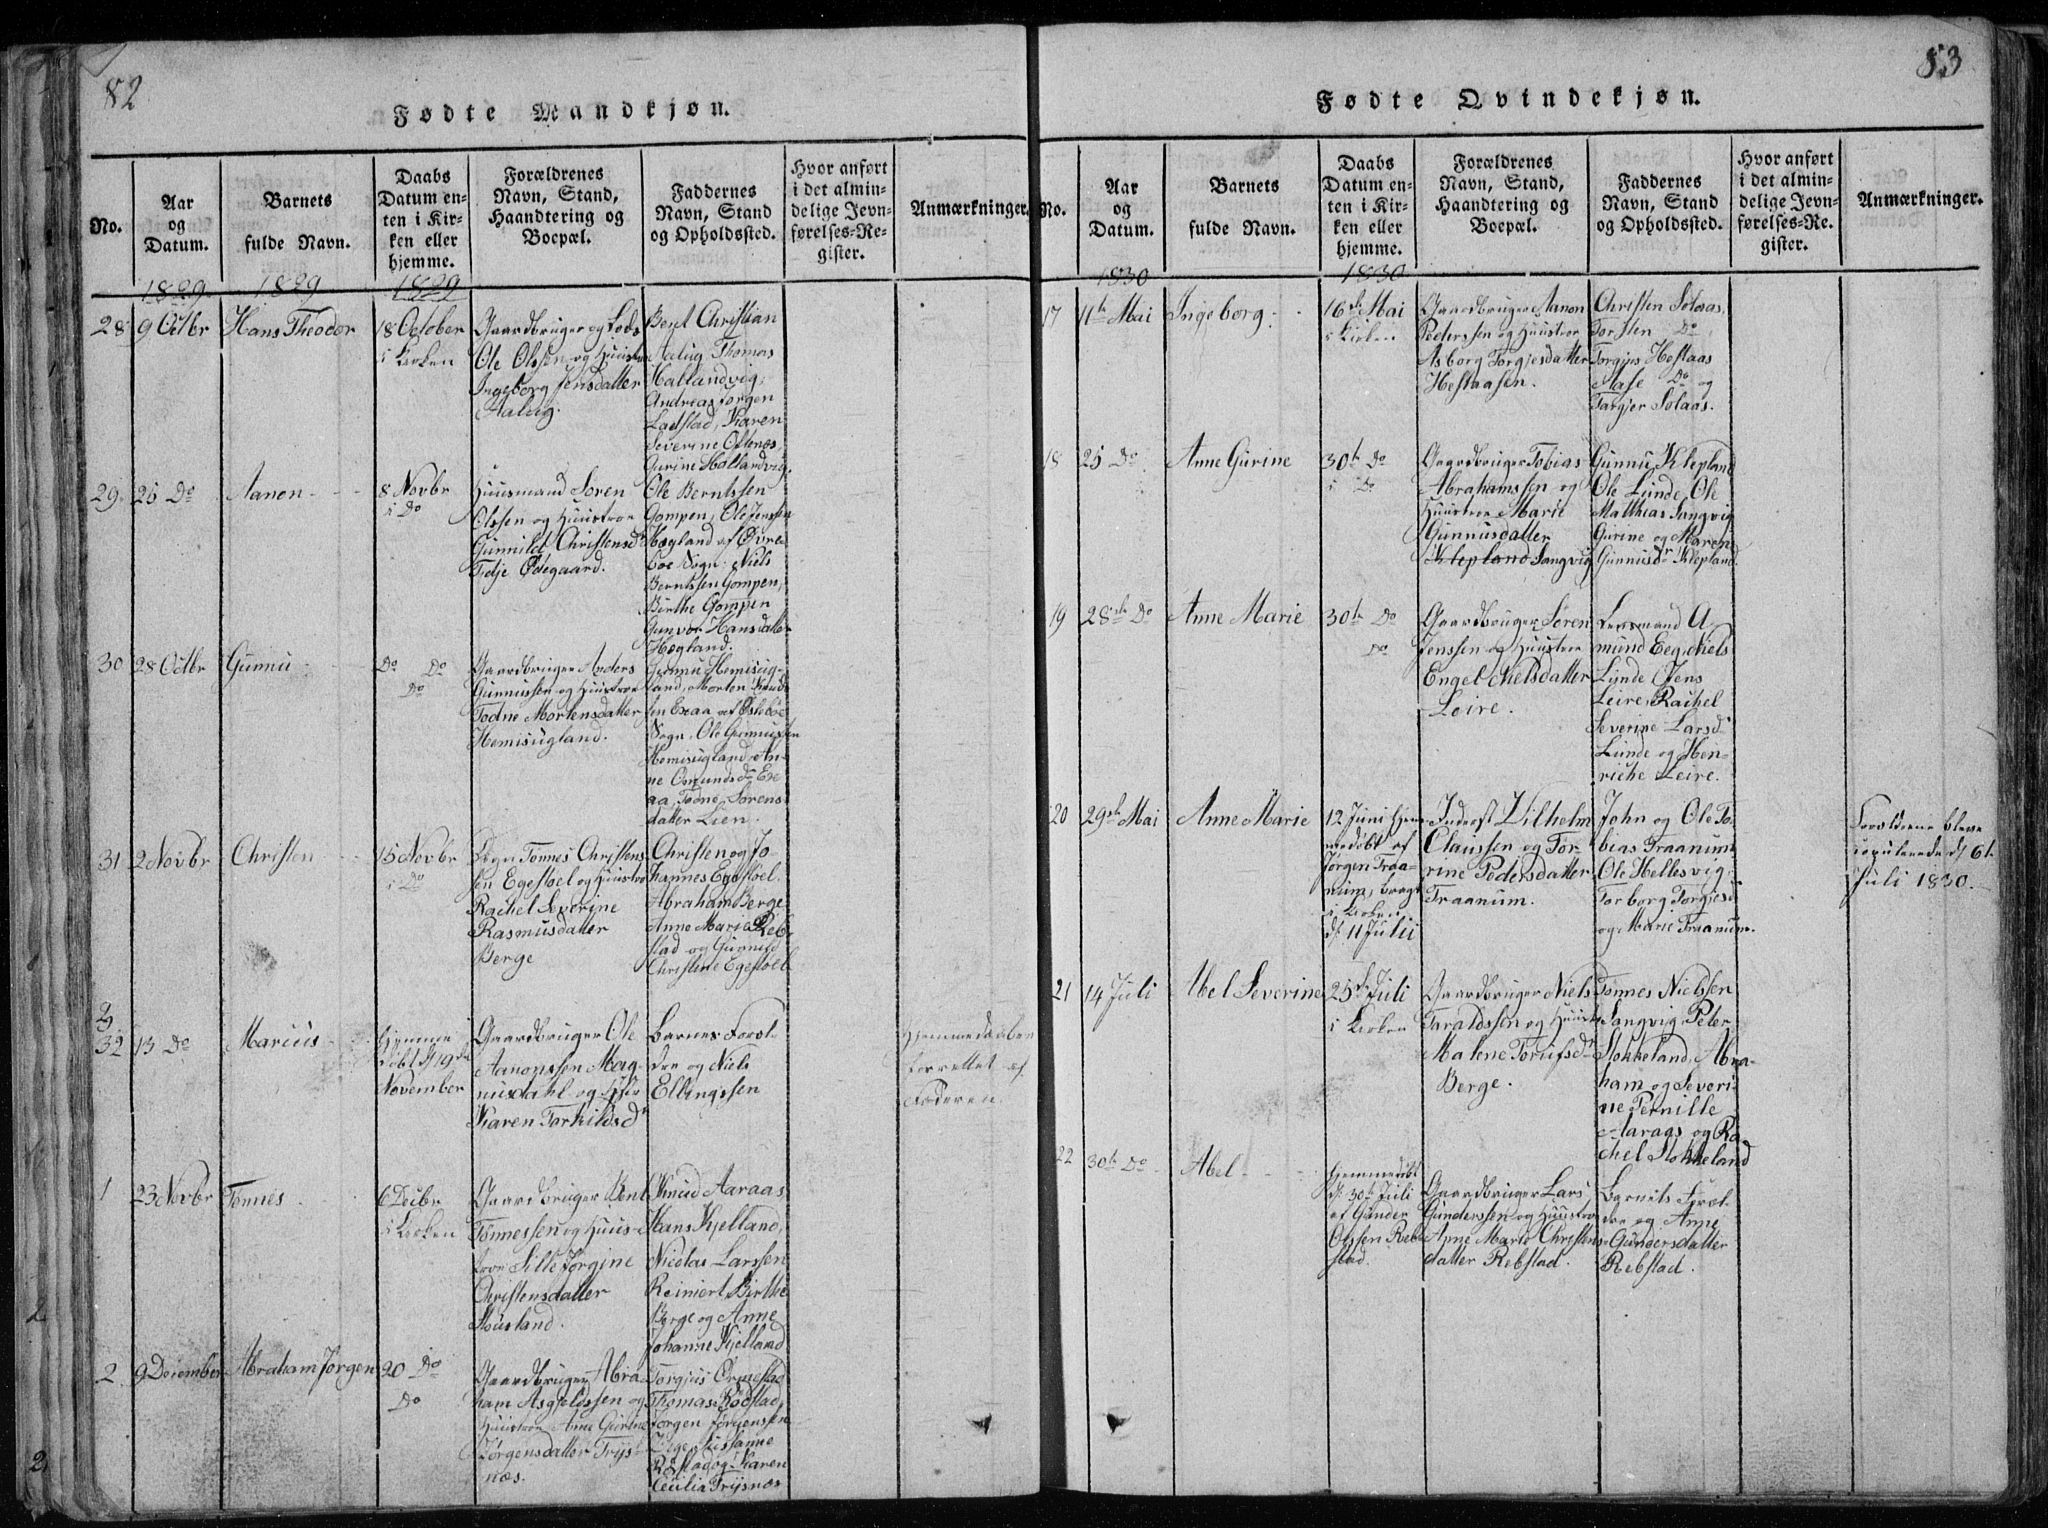 82
Fødte Mandkjøn.
No.
Aar
og
Datum.
Barnets
fulde Navn.
Daabs
Datum en-
ten i Kir-
ken eller
hjemme.
Forældrenes
Navn, Stand,
Haandtering og
Boepæl.
Faddernes
Navn, Stand
og Opholdssted.
Hvor anført
i det almin-
delige Jevn-
førelses-Re-
gister.
Anmærkninger.
1829
1829
1829
28
9 Octbr
Hans Theodor
18 October
i Kirken
Gaardbruger og Lods
Ole Olssen og Huustroe
Ingeborg Jensdatter
Aalug.
Bent Christian
Aalug, Thomas
Hallandvig,
Andreas Jørgen
Ladstad, Karen
Severine Oltenes,
Gurine Hollandvig.
29
25 Do
Aanon
8 Novbr
i Do
Huusmand Søren
Olssen og Huustroe
Gunnild Christensdr
Tidje Ødegaard.
Ole Berntssen
Gompen, Ole Jenssen
Høgland af Øvre-
boe Sogn, Niels
Berntssen Gompen,
Birthe Gompen
Gunvor Hansdatter
Høgland.
30
28 Octbr
Gunnu
Do Do
Do
Gaardbruger Anders
Gunnussen og Huustroe
Todne Mortensdatter
Homisugland.
Gunnu Homisug-
land, Morten Knud-
sen Exaa af Oslebøe
Sogn, Ole Gunnussen
Homisugland, An-
ne Osmundsdr Exe-
aa, Todne Sørens-
datter Lien.
31
2 Novbr
Christen
15 Novbr
i Do
Tønnes Christens-
sen Egestoel og Huustroe
Rachel Severine
Rasmusdatter
Berge
Christen og Jo-
hannes Egestoel.
Abraham Berge
Anne Marie Reb-
stad og Gunnild
Christine Egestoel
32
13 Do
Marcus
Hjemme
døbt d 19de
November
Gaardbruger Ole
Aanonssen Mag-
nusdahl og Hustr
Karen Torkildsdr
Barnes Foræl-
dre og Niels
Ellingssen
Hjemmedaaben
forrettet af
Faderen.
1
23 Novbr
Tønnes
6 Decbr
i Kirken
Gaardbruger Bent
Tønnessen og Huus-
troe Sille Jørgine
Christensdatter
Stousland.
Knud Aaraas,
Hans Kjelland,
Nicolai Larssen
Reiniert, Birthe
Berge og Anne
Johanne Kjelland
2
9 December
Abraham Jørgen
20 Do
Do
Gaardbruger Abra-
ham Asgieldssen og
Huustroe Anne Gurine
Jørgensdatter Trys-
næs.
Torgius Ormestad
Thomas Rødstad,
Jørgen Jørgenssen
Sussanne
Karen
Cecilia Trysnæs
83
Fødte Qvindekjøn.
No.
Aar
og
Datum.
Barnets
fulde Navn.
Daabs
Datum en-
ten i Kir-
ken eller
hjemme.
Forældrenes
Navn, Stand,
Haandtering og
Boepæl.
Faddernes
Navn, Stand
og Opholdssted.
Hvor anført
i det almin-
delige Jevn-
førelses-Re-
gister.
Anmærkninger.
1830
1830
17
11te Mai
Ingeborg
16de Mai
i Kirken
Gaardbruger Aanon
Pederssen og Huustroe
Asborg Torgjesdatter
Hestaasen.
Christen Solaas,
Torsten Do
Torgjus Hestaas
Aase Do og
Targjer Solaas.
18
25 Do
Anne Gurine
30te Do
i Do
Gaardbruger Tobias
Abrahamssen og
Huustroe Marie
Gunnusdatter
Klepland Langvig
Gunnu Klepland
Ole Lunde, Ole
Matthias Langvig
Gurine og Maren
Gunnusdr Klepland.
19
28de Do
Anne Marie
30te Do
Do
Gaardbruger Søren
Jenssen og Huustroe
Engel Nielsdatter
Leire.
Lensmand A-
mund Eeg, Niels
Lunde, Jens
Leire, Rachel
Severine Larsdr
Lunde og Hen-
riche Leire.
20
29de Mai
Anne Marie
12 Juni Hjem-
medøbt af
Jørgen Traa-
num, bragt
i Kirken
d. 11 Julii
Inderst Vilhelm
Claussen og Tor-
rine Pedersdatter
Traanum.
John og Ole To-
bias Traanum
Ole Hellesvig
Torborg Torgjesdr
og Marie Traanum.
Forældrene bleve
copulerede d. 6te
Juli 1830.
21
14 Juli
Abel Severine
25de Juli
i Kirken
Gaardbruger Niels
Taraldssen og Huustr
Malene Torufsdr
Berge.
Tønnes Nielssen
Langvig, Peter
Stokkeland, Abra-
ham og Severi-
ne Pernille
Aarags og Ra-
chel Stokkeland
22
30te Do
Abel
Hjemmedøbt
d. 30te Juli
af Gunder
Olssen Reb-
stad.
Gaardbruger Lars
Gunderssen og Huustroe
Anne Marie Christens-
datter Rebstad.
Barnets Foræl-
dre og Anne
Gundersdatter
Rebstad.